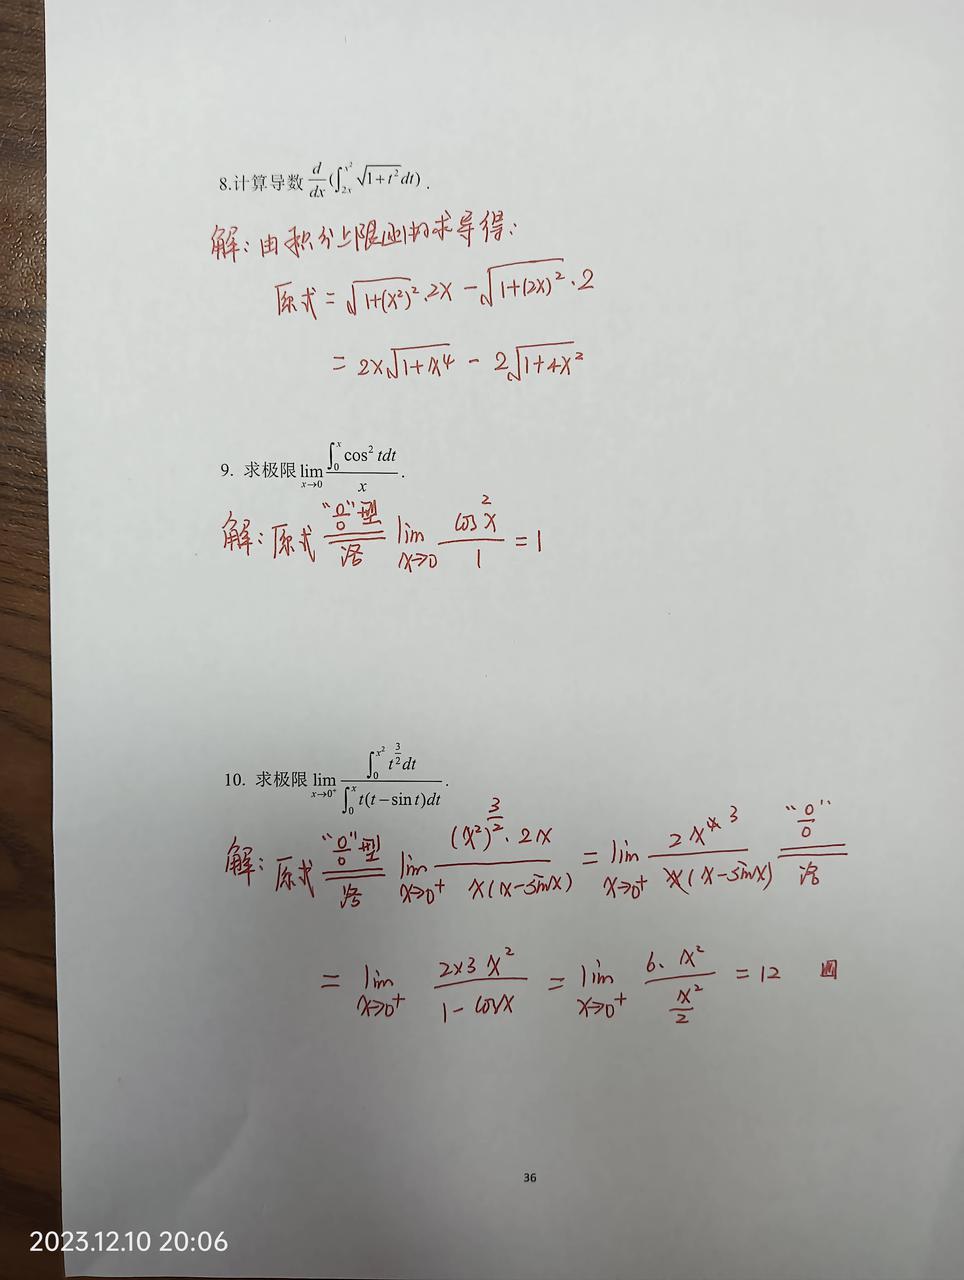 8.计算导数 d/dx (∫_{2x}^{x²} √(1+t²) dt) .
解: 由积分上限函数的求导得:
原式 = √(1+(x²)²) · 2x - √(1+(2x)²) · 2
= 2x√(1+x⁴) - 2√(1+4x²)
9. 求极限 lim_{x→0} (∫_0^x cos² t dt) / x .
解: 原式 "0/0"型 洛 lim_{x→0} cos²x / 1 = 1
10. 求极限 lim_{x→0⁺} (∫_0^{x²} t^{3/2} dt) / (∫_0^x t(t-sin t)dt) .
解: 原式 "0/0"型 洛 lim_{x→0⁺} ((x²)^{3/2} · 2x) / (x(x-sinx)) = lim_{x→0⁺} 2x³ / (x-sinx) "0/0" 洛
= lim_{x→0⁺} (2×3 x²) / (1-cosx) = lim_{x→0⁺} (6·x²) / (x²/2) = 12
36
2023.12.10 20:06